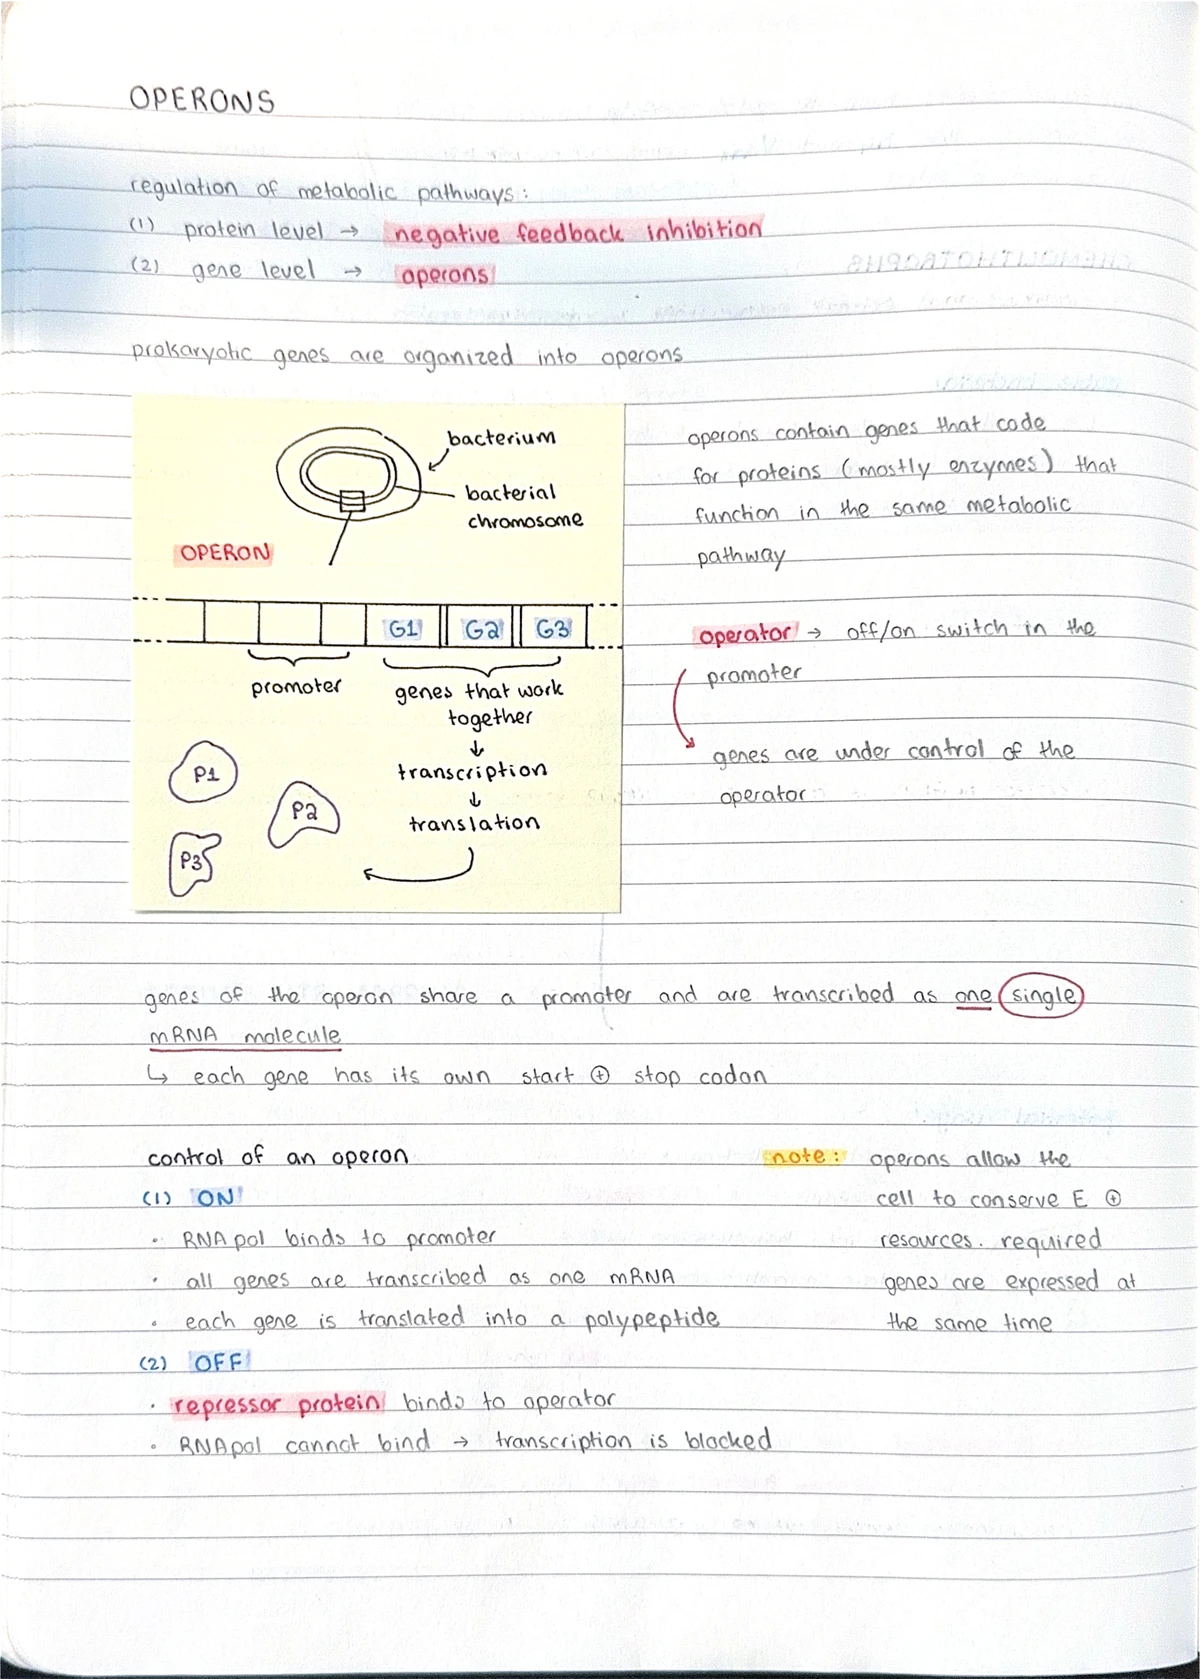 OPERONS
regulation of metabolic pathways:
(1) protein level → negative feedback inhibition
(2) gene level → operons
prokaryotic genes are organized into operons
bacterium
bacterial
chromosome
OPERON
G1 G2 G3
promoter
genes that work
together
↓
transcription
↓
translation
P1
P2
P3
operons contain genes that code
for proteins (mostly enzymes) that
function in the same metabolic
pathway
operator → off/on switch in the
promoter
genes are under control of the
operator
genes of the operon share a promoter and are transcribed as one single
mRNA molecule
↳ each gene has its own start ⊕ stop codon
control of an operon
(1) ON
• RNApol binds to promoter
• all genes are transcribed as one mRNA
• each gene is translated into a polypeptide
(2) OFF
• repressor protein binds to operator
• RNApol cannot bind → transcription is blocked
note: operons allow the
cell to conserve E ⊕
resources. required
genes are expressed at
the same time